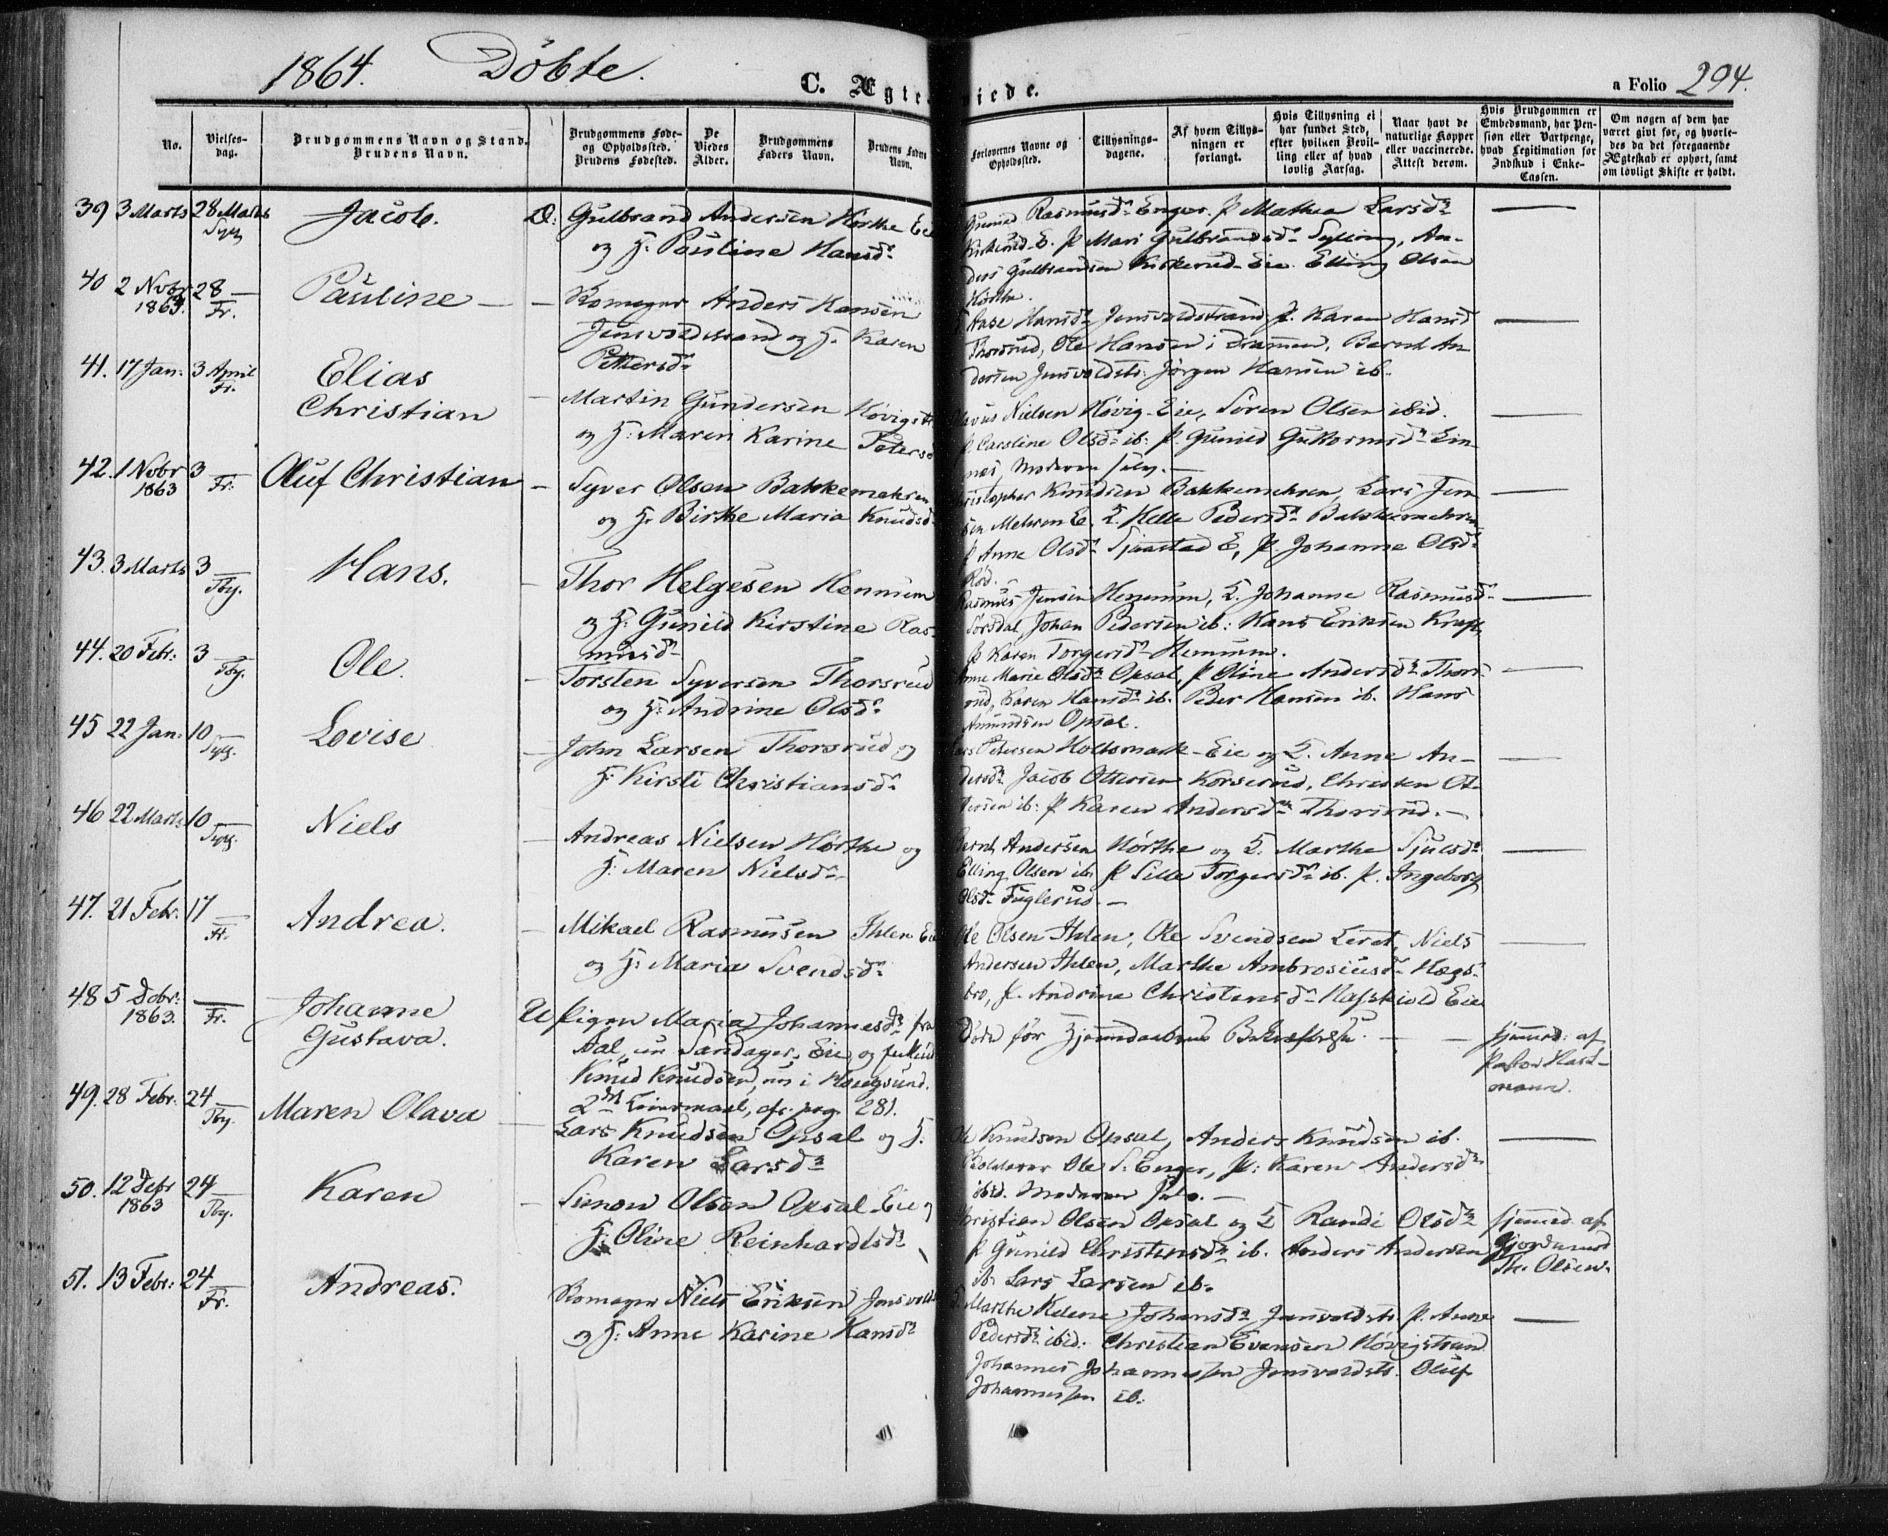 1864. Döbte.
C. Ægte viede.
a Folio 294.
No.
Vielses-dag.
Brudgommens Navn og Stand. Brudens Navn.
Brudgommens Føde- og Opholdsted. Brudens Fødested.
De Viedes Alder.
Brudgommens Faders Navn.
Brudens Faders Navn.
Forlovernes Navne og Opholdsted.
Tillysnings-dagene.
Af hvem Tillys-ningen er forlangt.
Hvis Tillysning ei har fundet Sted, efter hvilken Bevil-ling eller af hvad lovlig Aarsag.
Naar havt de naturlige Kopper eller vaccinerede. Attest derom.
Hvis Brudgommen er Embedsmand, har Pen-sion eller Vartpenge, hvad Legitimation for Indskud i Enke-Cassen.
Om nogen af dem har været givt før, og hvorle-des da det foregaaende Ægteskab er ophørt, samt om lovligt Skifte er holdt.
39 3 Marts 28 Marts Sylg Jacob. Æ: Gulbrand Andersen Hörthe Eie
og H: Pauline Hansd.
Gunild Rasmusd. Enger. P. Mathea Larsd.
Kirkerud-E. P. Mari Gulbrandsd. Sylling, An-
ders Gulbrandsen Kirkerud-Eie. Elling Olsen
Hörthe.
40 2 Novbr 1863. 28 Fr. Pauline Romager Anders Hansen
Jensvoldstrand og H. Karen
Pettersd.
Aase Hansd. Jensvoldstrand P. Karen Hansd
Thorsrud, Ole Hansen i Drammen, Bernt An-
dersen Jensvoldstr. Jörgen Hansen ib.
41. 17 Jan: 3 April Fr. Elias
Christian
Martin Gundersen Hövigstr
og H: Maren Karine Petersd
Nielsen Hövig-Eie, Sören Olsen ibid.
P. Caroline Olsd. ib: P. Gunild Guttormsd. Lin-
nes, Moderen selv.
42. 1 Novbr 1863 3 Fr: Oluf Christian Syver Olsen Bakkemehren
og H. Birthe Maria Knudsd
Christopher Knudsen Bakkemehren, Lars Jen-
sen Mehren E. Helle Pedersd. Bakkemehren
P Anne Olsd. Sjaastad E, P. Johanne Olsd.
Röd.
43. 3 Marts 3 Tby. Hans. Thor Helgesen Hennum
og H: Gunild Kirstine Ras-
musd.
Rasmus Jensen Hennum, Johanne Rasmusd.
Sörsdal, Johan Pedersen ib: Hans Eriksen
P Karen Torgersd. Hennum.
44. 20 Febr: 3 Tby. Ole. Torsten Syversen Thorsrud
og H: Andrine Olsd.
Anne Marie Olsd. Opsal, P Oline Andersd. Thors-
rud, Karen Hansd. ib. Peder Hansen ib. Hans
Amundsen Opsal.
45 22 Jan: 10 Sylg. Lovise John Larsen Thorsrud og
H. Kirsti Christiansd.
Lars Petersen Holtsmark-Eie og Anne An-
dersd. Jacob Ottersen Korserud, Christen Ot-
tersen ib: P Karen Andersd. Thorsrud.
46 22 Marts 10 Sylg. Niels Andreas Nielsen Hörthe og
H. Maren Nielsd.
Bernt Andersen Hörthe og Marthe Sjulsd.
Elling Olsen ib. P Sille Torgersd. ib. P. Ingeborg
Olsd. Fuglerud.
47. 21 Febr. 17 Fr. Andrea. Mikael Rasmusen Ihlen Eie
og H: Maria Svendsd.
Ole Olsen Ihlen, Ole Svendsen Leret, Niels
Andersen Ihlen, Marthe Ambrosiusd. Hægs-
bro, P. Andrine Christensd. Eie
48 5 Dcbr. 1863. Fr. Johanne
Gustava.
U Pigen Maria Johannesd. fra
Aal, nu Sandager-Eie og
Knud Knudsen, nu i Haugsund.
2det Leiermaal, cfr. pag. 281.
Döde för Hjemmedaabens Bekræftelse.
hjemmed. af
Pastor Hart-
mann.
49. 28 Febr. 24 Tby. Maren Olava Lars Knudsen Opsal og H:
Karen Larsd.
Ole Knudsen Opsal, Anders Knudsen ib.
Ole S. Enger, P: Karen Andersd.
ibid. Moderen selv.
50. 12 Debr 1863 24 Tby. Karen Simon Olsen Opsal-Eie og
H: Oline Reinhardtsd.
Christian Olsen Opsal og Randi Olsd.
P Gunild Christensd. ib. Anders Andersen
ib. Lars Larsen ib.
hjemmed. af
Gjordemod
Th. Olsen.
51. 13 Febr: 24 Fr. Andreas. Romager Niels Eriksen Jensvolds
og H: Anne Karine Hansd.
Marthe Helene Johansd. Jensvoldstr. P. Anne
Pedersd. ibid. Christian Evensen Hövigstrand
Johannes Johannessen Jensvoldstr. Oluf
Johannessen ib.